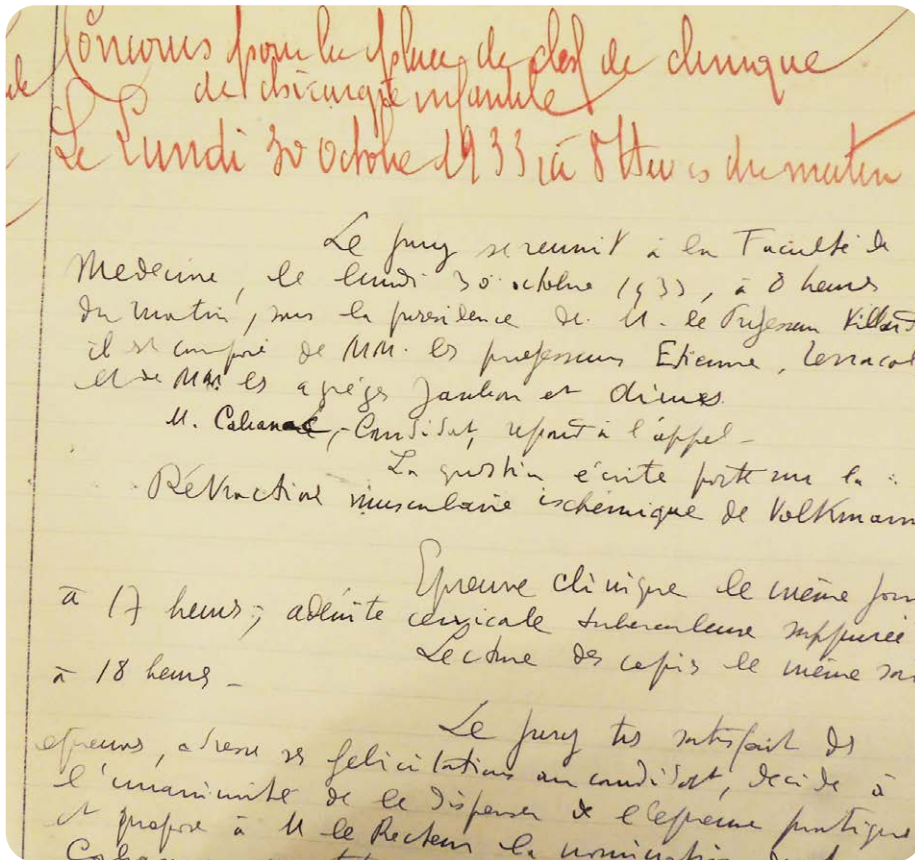 Concours pour la place de chef de clinique
de chirurgie infantile
Le Lundi 30 octobre 1933 à 8 Heures du matin
Le jury se reunit à la Faculté de
Medecine, le lundi 30 octobre 1933, à 8 heures
du matin, sous la presidence de M. le Professeur Villard
il est composé de MM. les professeurs Etienne, Terracol
et de MM. les agrégés Jambon et dimes
M. Cabanac, - Candidat, repond à l'appel -
La question écrite porte sur la :
Rétraction musculaire ischémique de Volkmann
Epreuve clinique le même jour
à 17 heures, adénite cervicale tuberculeuse suppurée
Lecture des copies le même
à 18 heures -
Le jury très satisfait des
epreuves, adresse ses félicitations au candidat, decide à
l'unanimité de le dispenser de l'épreuve pratique
et propose à M le Recteur la nomination